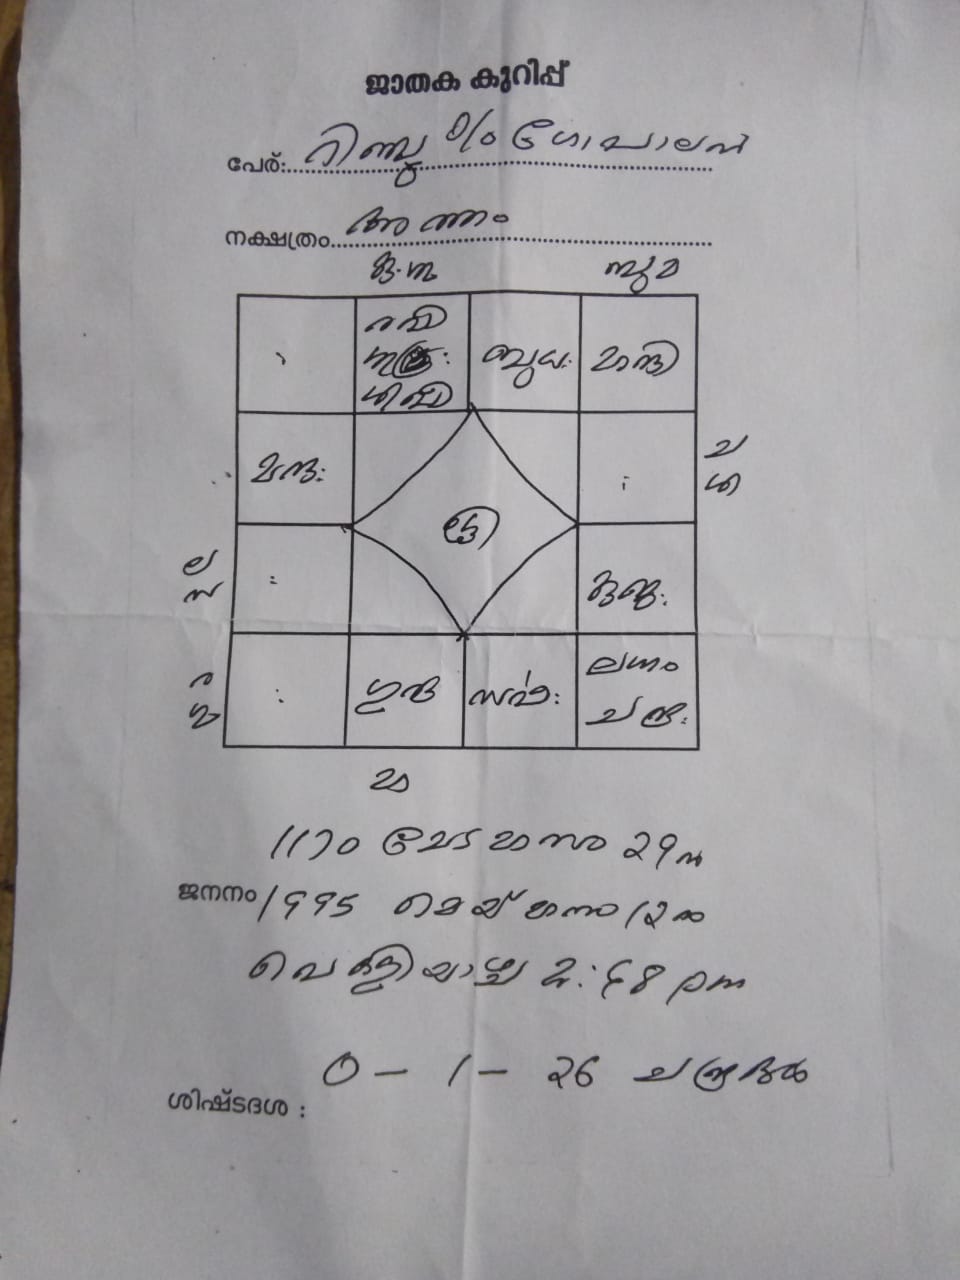 ജാതക കുറിപ്പ്
പേര്: റിന്റു D/o ഗോപാലൻ
നക്ഷത്രം അത്തം
രവി
ശിഖി
ബുധ:
മാന്ദി
മന്ദ:
കുജ:
ഗുരു
സർപ്പ:
ലഗ്നം
ചന്ദ്ര:
മാ
1170 മേടമാസം 29ന്
ജനനം 1995 മെയ് മാസം 12ന്
വെള്ളിയാഴ്ച 2:48 pm
ശിഷ്ടദശ : 0 – 1 – 26 ചന്ദ്രദശ